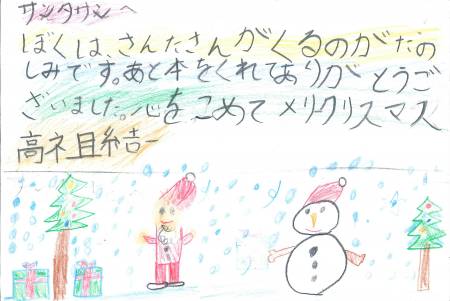 サンタサンへ
ぼくは、さんたさんがくるのがたの
しみです。あと本をくれてありがとうご
ざいました。心をこめてメリクリスマス
高ネ且糸吉一